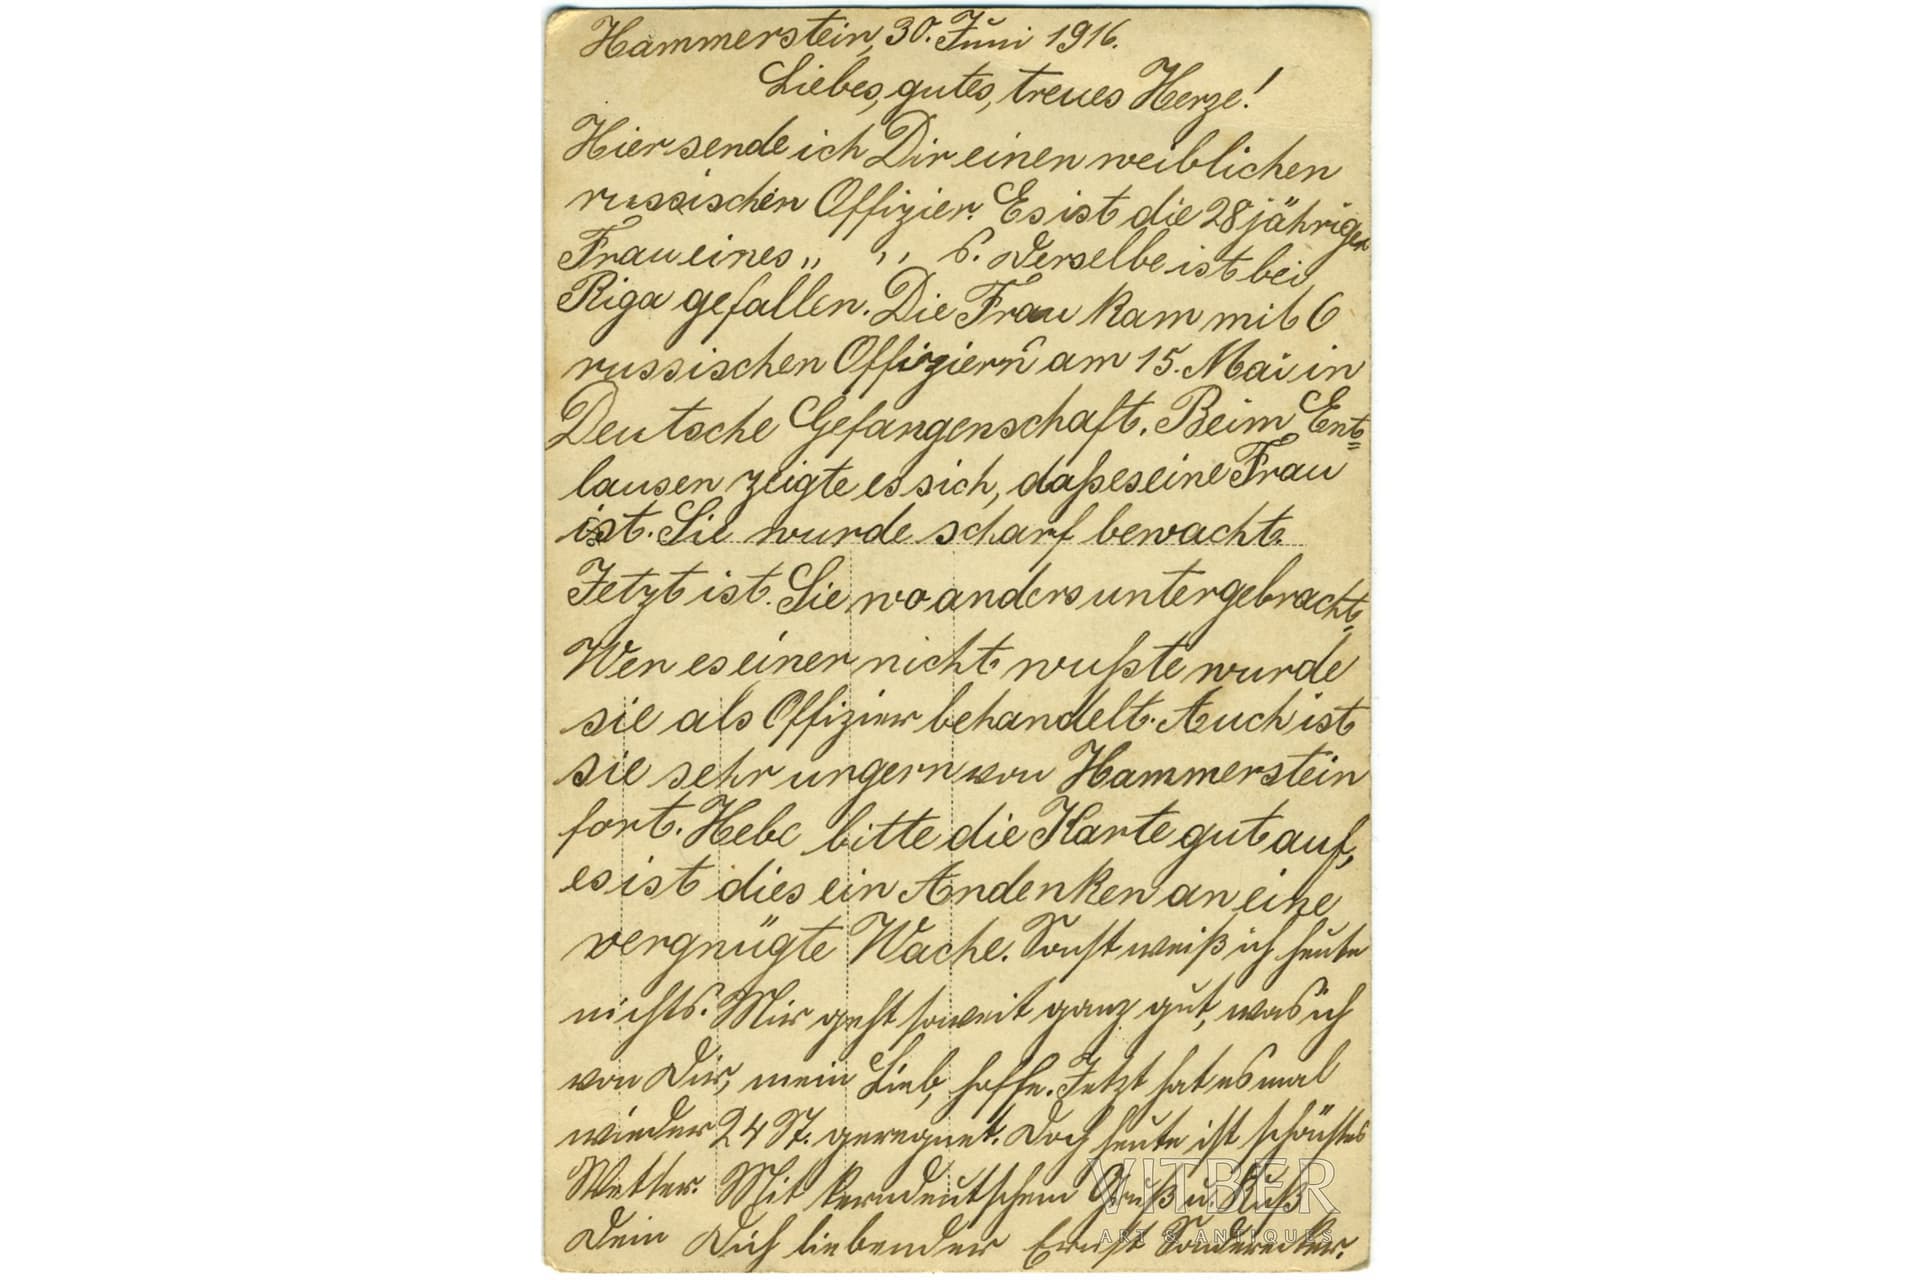 Hammerstein, 30. Juni 1916.
Liebes, gutes, treues Herze!
Hier sende ich Dir einen weiblichen
russischen Offizier. Es ist die 28 jährigen
Frau eines „ „ 6. Derselbe ist bei
Riga gefallen. Die Frau kam mit 6
russischen Offiziern am 15. Mai in
Deutsche Gefangenschaft. Beim Ent=
lausen zeigte es sich, daß es eine Frau
ist. Sie wurde scharf bewacht.
Jetzt ist. Sie wo anders untergebracht.
Wen es einer nicht wußte wurde
sie als Offizier behandelt. Auch ist
sie sehr ungern von Hammerstein
fort. Hebe bitte die Karte gut auf,
es ist dies ein Andenken an eine
vergnügte Wache. Sonst weiß ich heute
nichts. Mir geht soweit ganz gut, was ich
von Dir, mein Lieb, hoffe. Jetzt hat es mal
wieder 24 St. geregnet. Doch heute ist schönstes
Wetter. Mit kerndeutschem Gruß u. Kuß
Dein Dich liebender Ernst
VITBER
ART & ANTIQUES